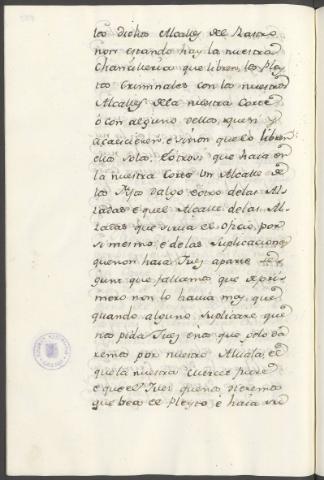 los dichos Alcalles del Rastro
non estando hay la nuestra
Chancilleria que libren los Pley
tos Criminales con los nuestros
Alcalles de la nuestra Corte
ò con alguno dellos, que si y
acaecieren, è vinon que lo libren
ellos solos. Eotrosi que haia en
la nuestra Corte un Alcalle de
los Fijos dalgo è otro de las Al-
zadas è que el Alcalle de las Al-
zadas que sirva el oficio por
si mesmo è de las suplicaciones
que non haia Juez aparte se-
gunt que fallamos que de pri-
mero non lo havia mas que
quando alguno suplicare que
nos pida Juez è nos que gelo da
remos por nuestro Alvala, è
que la nuestra merced fuere
è que el Juez que nos dieremos
que vea el Pleyto è haia